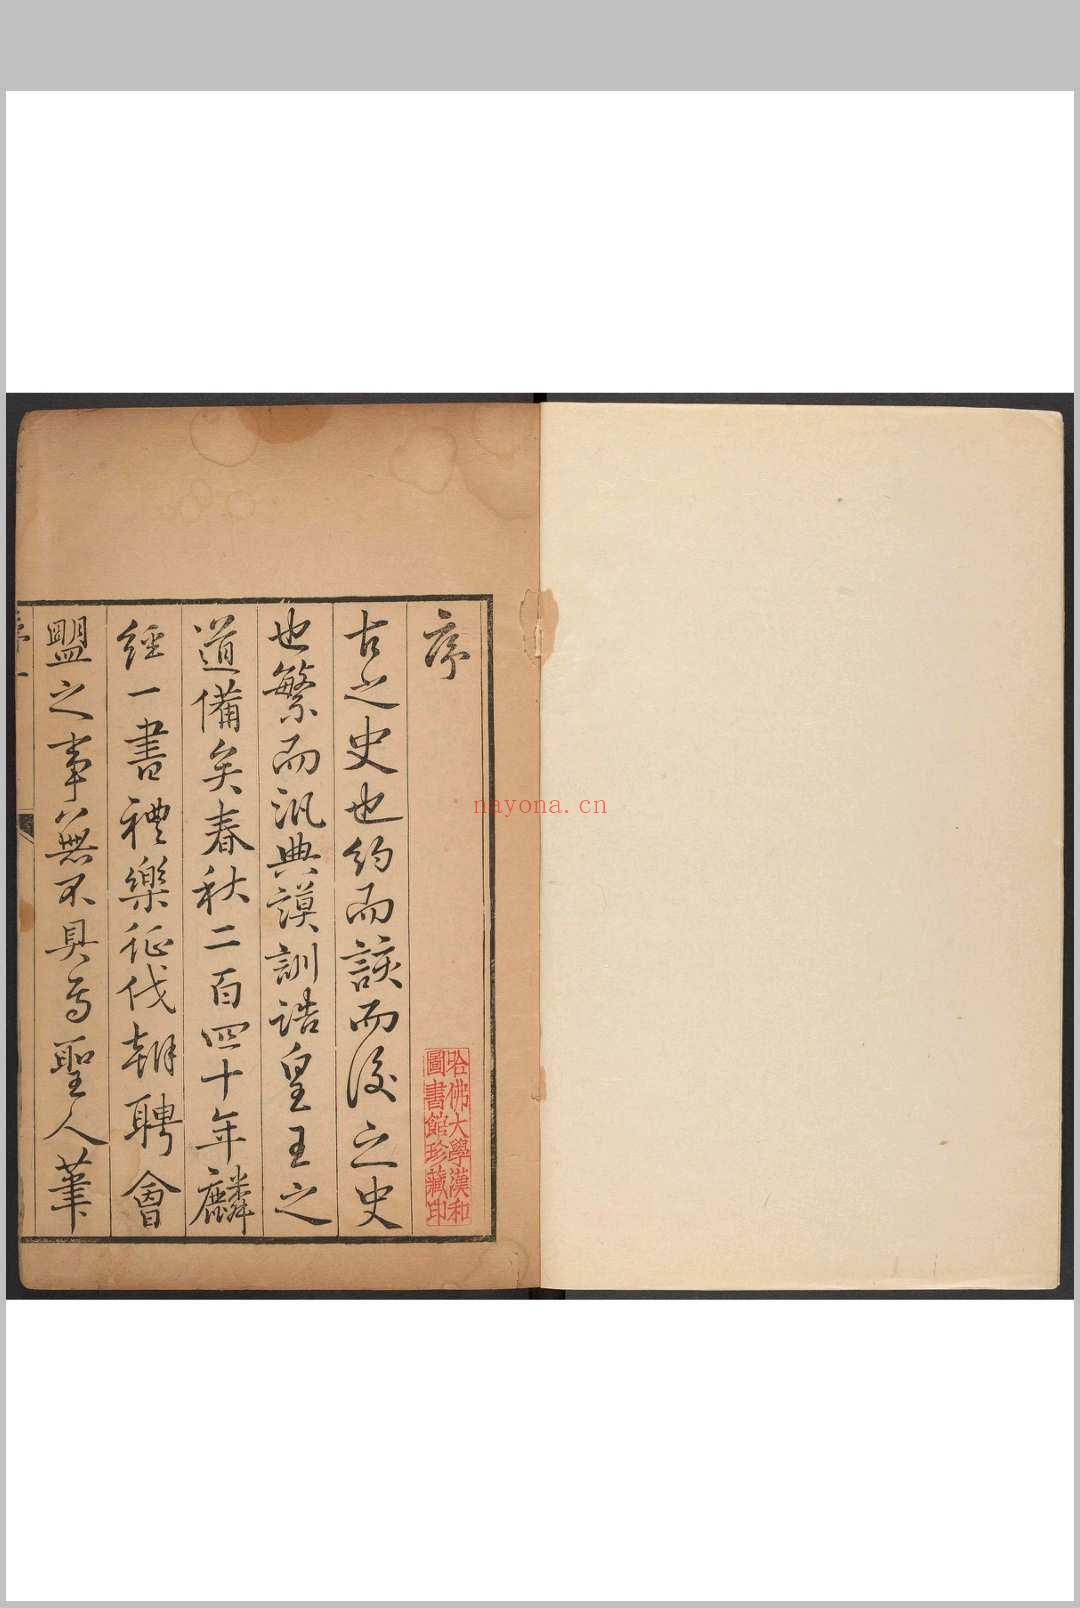 序
古之史也約而該而後之史
也繁而汎典謨訓誥皇王之
道備矣春秋二百四十年麟
經一書禮樂征伐朝聘會
盟之事無不具焉聖人筆
哈佛大學漢和
圖書館珍藏印
nayona.cn